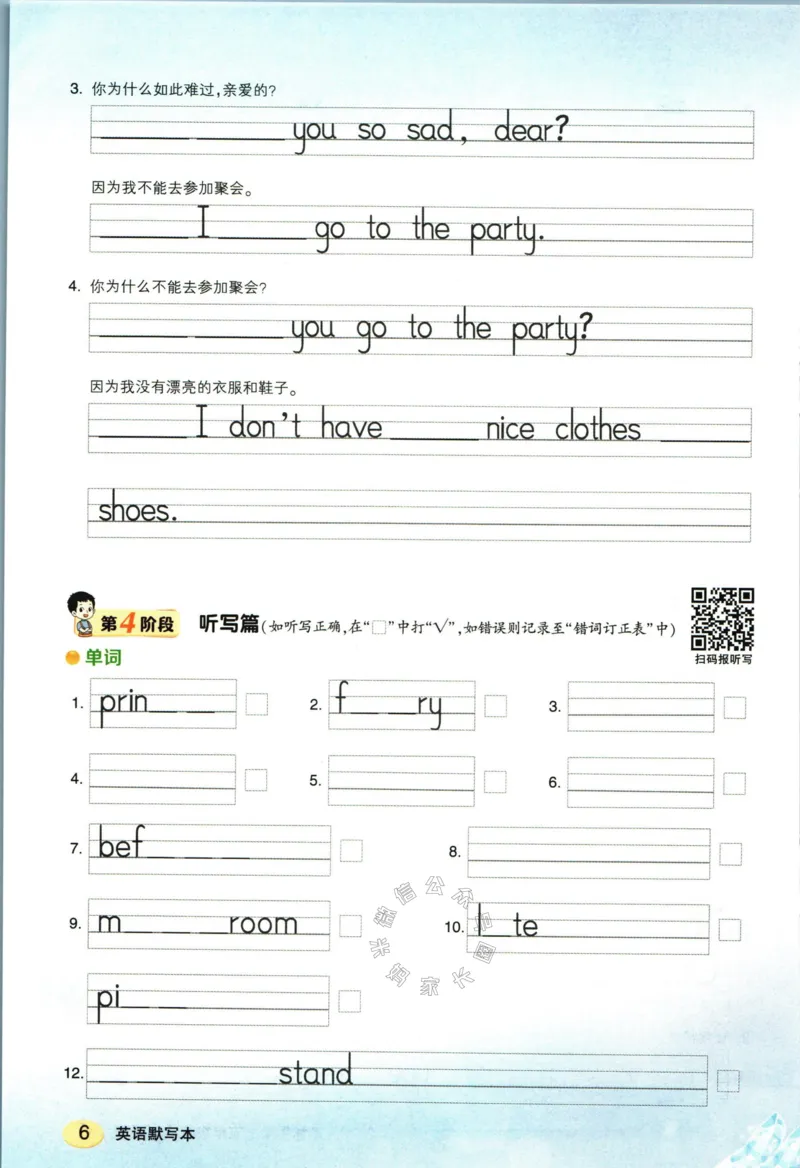 3. 你为什么如此难过,亲爱的?
______ ______ you so sad, dear?
因为我不能去参加聚会。
______ I ______ go to the party.
4. 你为什么不能去参加聚会?
______ ______ you go to the party?
因为我没有漂亮的衣服和鞋子。
______ I don't have ______ nice clothes ______
shoes.
第4阶段 听写篇(如听写正确,在“□”中打“√”,如错误则记录至“错词订正表”中)
扫码报听写
单词
1. prin____ □ 2. f____ry □ 3. □
4. □ 5. □ 6. □
7. bef______ □ 8. □
9. m______room □ 10. l__te □
pi______ □
12. ________stand □
微信公众号
米妈家长圈
6 英语默写本